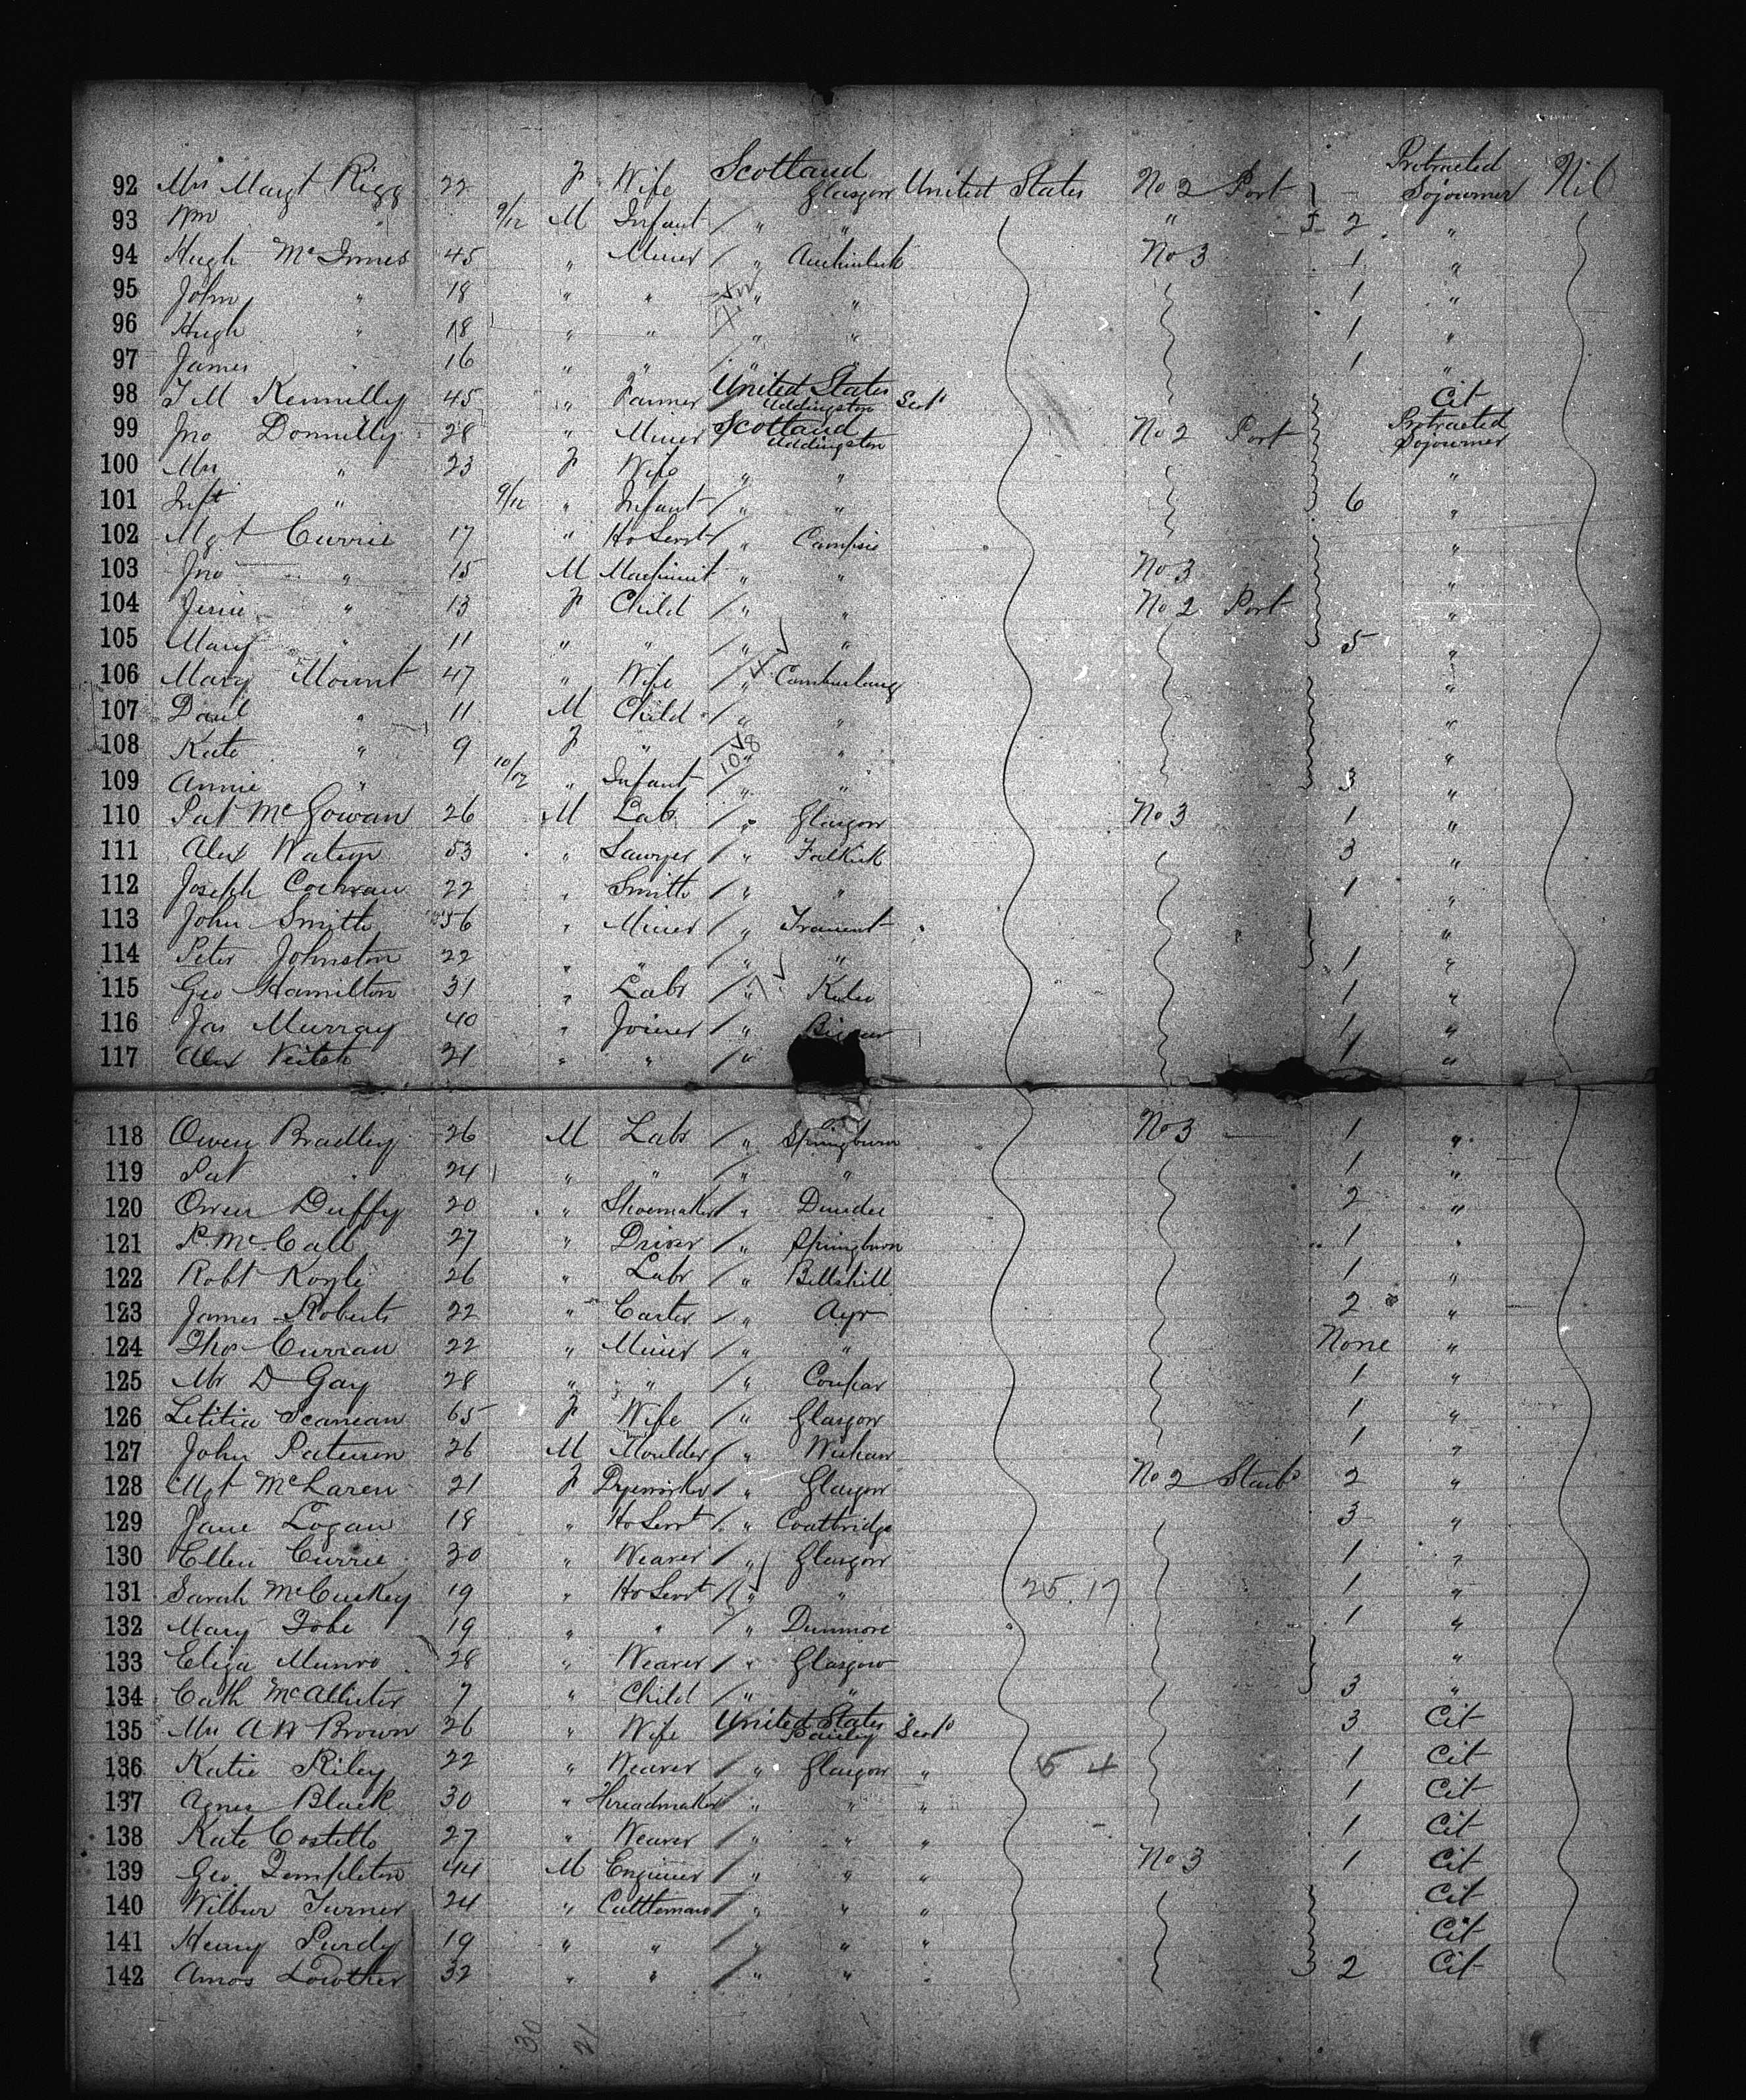 92 Mrs Margt Rigg 22 F Wife Scotland Glasgow United States No 2 Port Protracted Sojourner Nil
93 Wm " 9/12 M Infant / " " " 2 "
94 Hugh McInnes 45 " Miner / " Auchinleck No 3 1 "
95 John " 18 " " " " 1 "
96 Hugh " 18 " " " " 1 "
97 James " 16 " " / " " 1 "
98 T M Kennilly 45 " Farmer United States Uddingston Scotd Cit
99 Jno Donnilly 28 " Miner Scotland Uddingston No 2 Port Protracted Sojourner
100 Mrs " 23 F Wife " " "
101 Inft " 9/12 " Infant / " " 6 "
102 Mgt Currie 17 " Ho Servt / " Campsie "
103 Jno " 15 M Machinist " " No 3 "
104 Jessie " 13 F Child / " " No 2 Port "
105 Mary " 11 " " / " " 5 "
106 Mary Mount 47 " Wife / " Cambuslang "
107 Danl " 11 M Child / " " "
108 Kate " 9 F " / " " "
109 Annie " 10/12 " Infant / " " 3 "
110 Pat McGowan 26 M Labr / " Glasgow No 3 1 "
111 Alex Watson 53 " Sawyer / " Falkirk 3 "
112 Joseph Cochran 22 " Smith / " " 1 "
113 John Smith 56 " Miner / " Tranent "
114 Peter Johnston 22 " " / " " 1 "
115 Geo Hamilton 31 " Labr / " Kelso 1 "
116 Jas Murray 40 " Joiner / " Biggar "
117 Alex Veitch 21 " " / " 1 "
118 Owen Bradley 26 M Labr / " Springburn No 3 1 "
119 Pat " 24 " " / " " 1 "
120 Owen Duffy 20 " Shoemaker / " Dundee 2 "
121 P McCall 27 " Driver / " Springburn 1 "
122 Robt Koyle 26 " Labr / " Bellshill 1 "
123 James Roberts 22 " Carter / " Ayr 2 "
124 Thos Curran 22 " Miner / " " None "
125 Mr D Gay 28 " " / " Coupar 1 "
126 Letitia Scanlan 65 F Wife / " Glasgow 1 "
127 John Paterson 26 M Moulder / " Wishaw 1 "
128 Mgt McLaren 21 F Dyeworker / " Glasgow No 2 Starbd 2 "
129 Jane Logan 18 " Ho Servt / " Coatbridge 3 "
130 Ellen Currie 30 " Weaver / " Glasgow 1 "
131 Sarah McCuskey 19 " Ho Servt / " " 25.17 1 "
132 Mary Tobe 19 " " / " Dunmore 1 "
133 Eliza Munro 28 " Weaver / " Glasgow "
134 Cath McAllister 7 " Child / " " 3 "
135 Mrs A W Brown 26 " Wife United States Scotd 3 Cit
136 Katie Riley 22 " Weaver / " Glasgow " 5 4 1 Cit
137 Agnes Black 30 " Threadmaker / " " " 1 Cit
138 Kate Costello 27 " Weaver / " " " 1 Cit
139 Geo. Templeton 44 M Engineer / " " " No 3 1 Cit
140 Wilbur Turner 24 " Cattleman / " " " Cit
141 Henry Purdy 19 " " / " " " Cit
142 Amos Lowther 32 " " / " " " 2 Cit
30 21